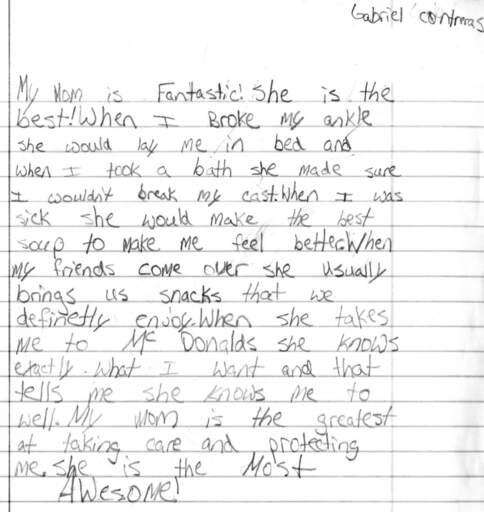 Gabriel contrras
My Mom is Fantastic! She is the
best! When I Broke my ankle
she would lay me in bed and
when I took a bath she made sure
I wouldn't break my cast. When I was
sick she would make the best
soup to make me feel better. When
my friends come over she usually
brings us snacks that we
definetly enjoy. When she takes
me to McDonalds she knows
exactly what I want and that
tells me she knows me to
well. My mom is the greatest
at taking care and protecting
me. she is the Most
AWesome!